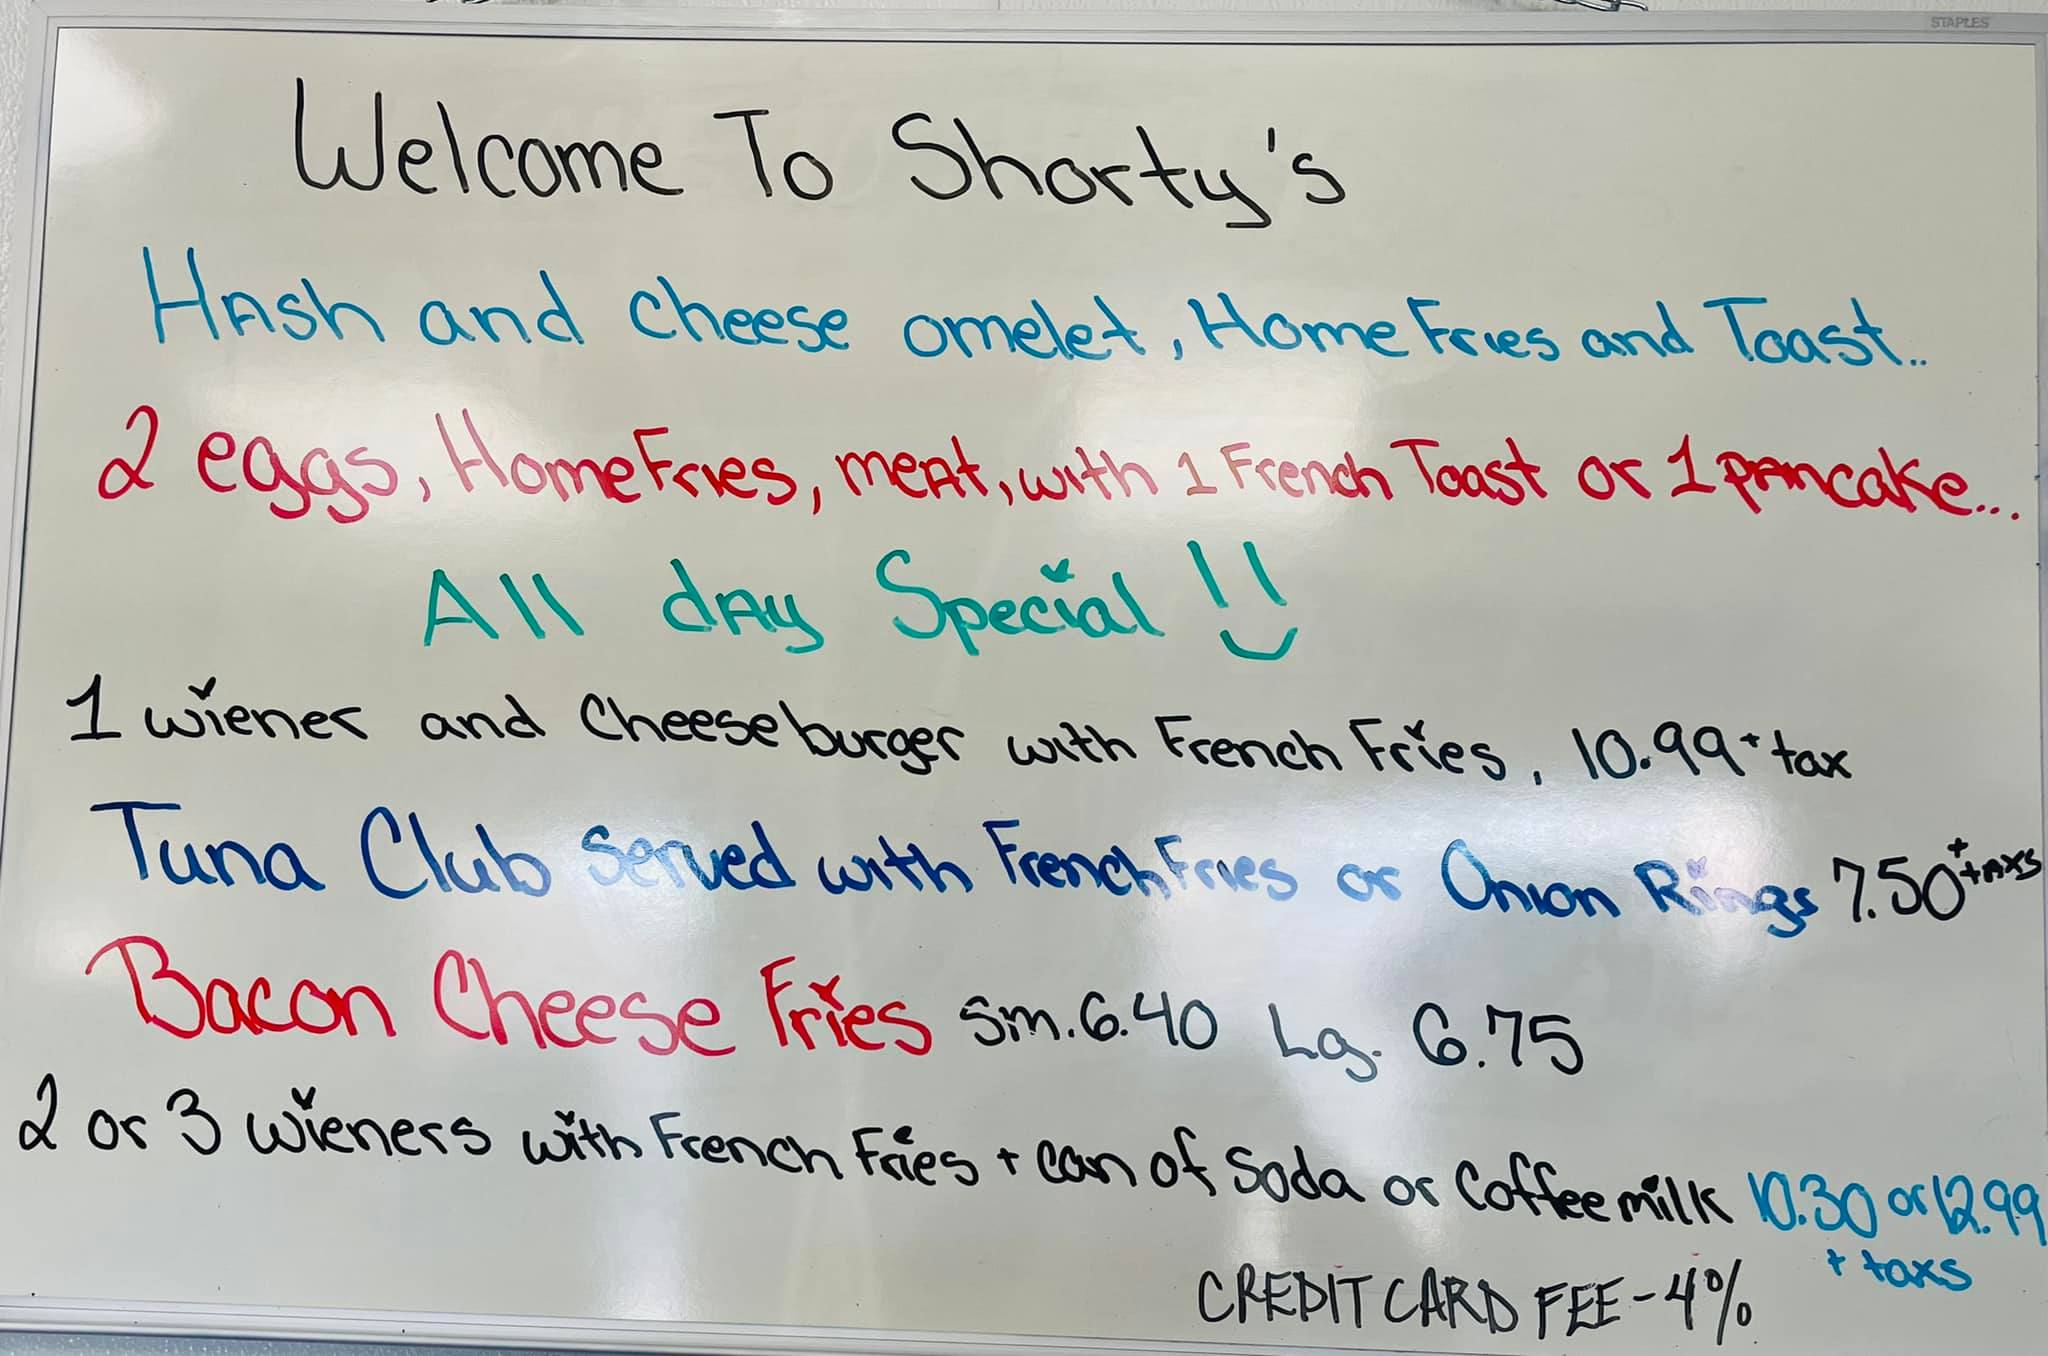 STAPLES
Welcome To Shorty's
HAsh and cheese omelet, Home Fries and Toast..
2 eggs, Home Fries, meAt, with 1 French Toast or 1 pAncake...
All dAy Special !!
1 wiener and Cheeseburger with French Fries, 10.99 + tax
Tuna Club Served with French Fries or Onion Rings 7.50 + tAxs
Bacon Cheese Fries Sm. 6.40 Lg. 6.75
2 or 3 wieners with French Fries + can of Soda or Coffee milk 10.30 or 12.99
+ taxs
CREDIT CARD FEE - 4%